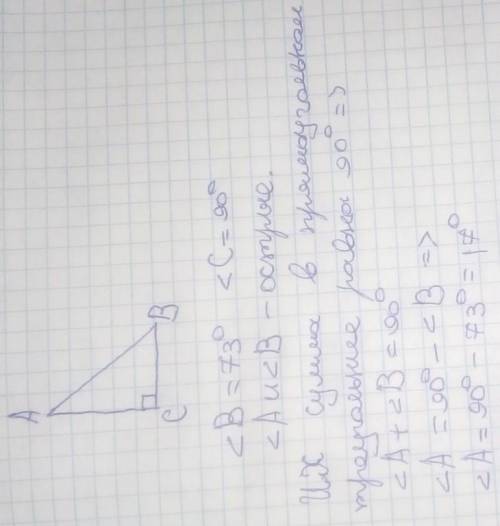 A
B
C
<B = 73° <C = 90°
<A и <B - острые.
Их сумма в прямоугольном
треугольнике равна 90° =>
<A + <B = 90°
<A = 90° - <B =>
<A = 90° - 73° = 17°